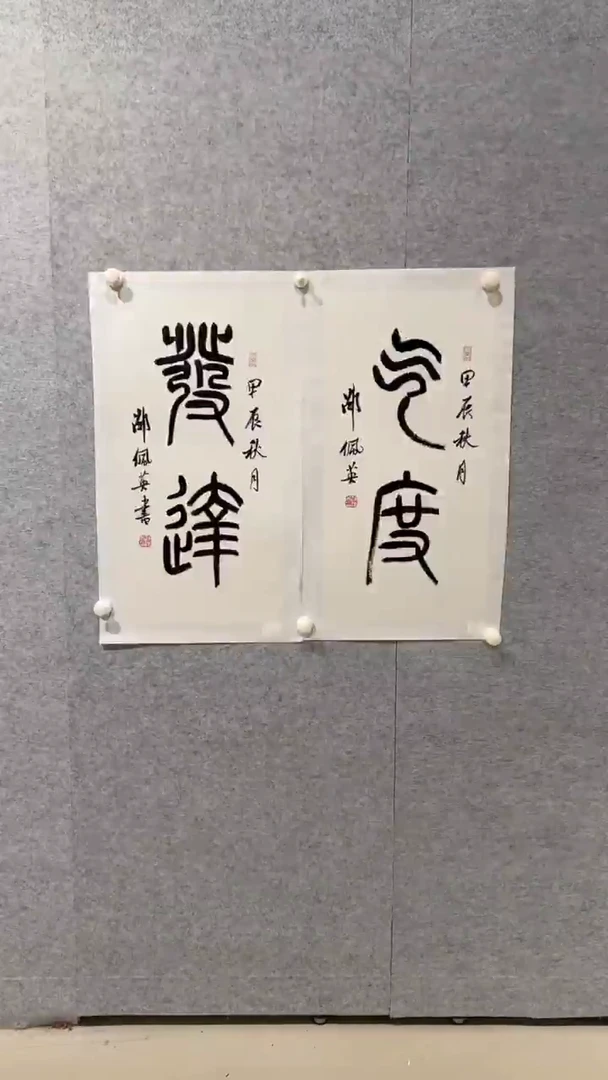 气度
甲辰秋月
佩英
發達
甲辰秋月
佩英書